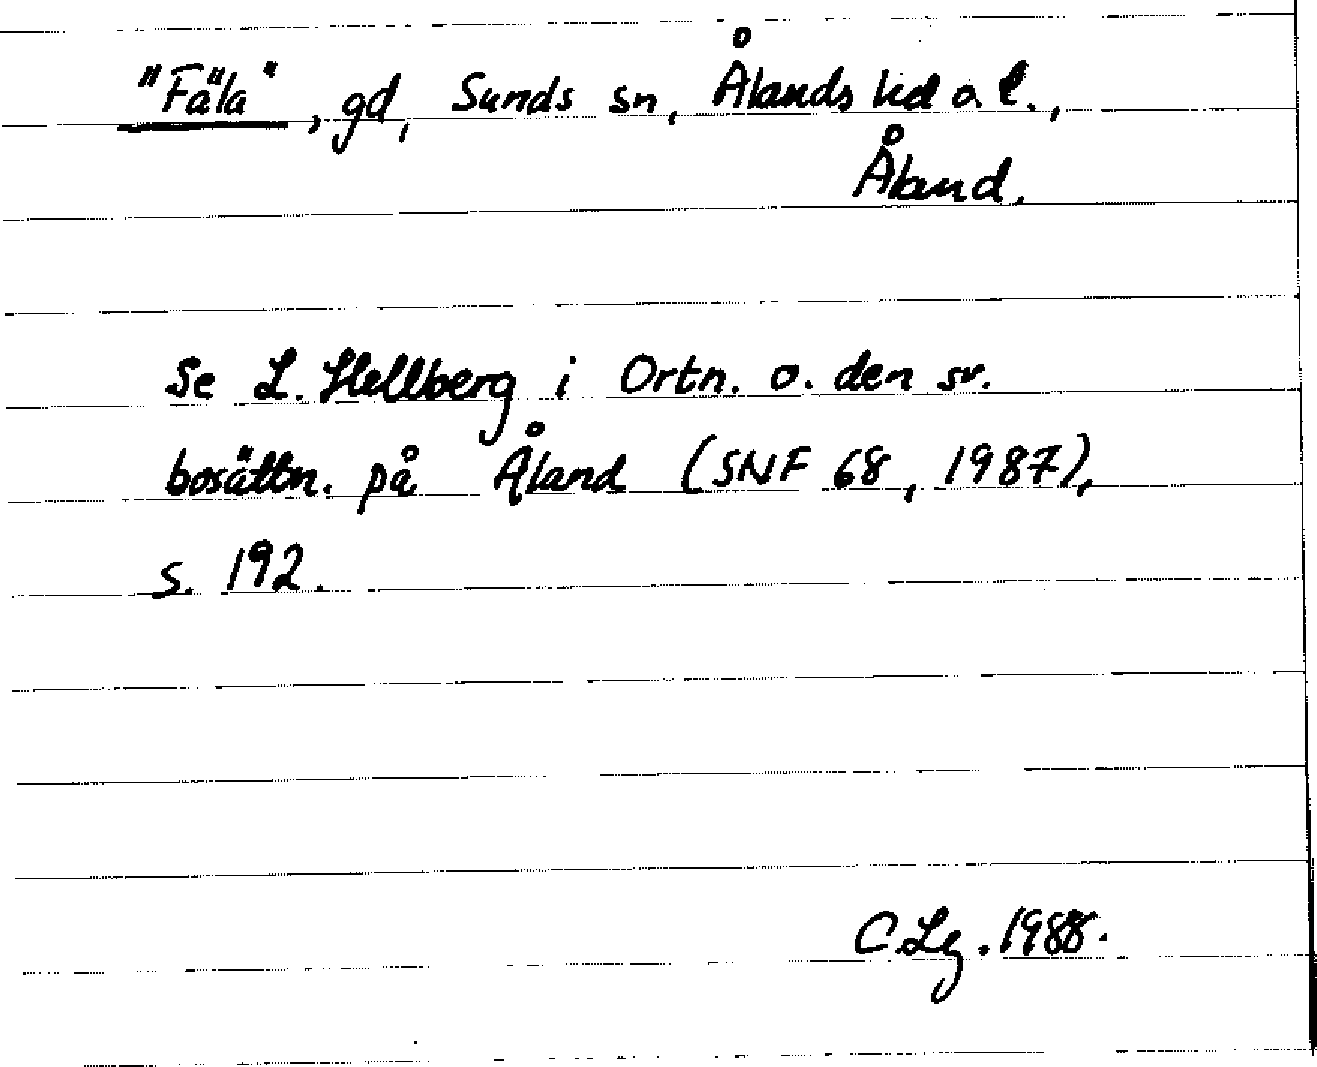 "Fäla", gd, Sunds sn, Ålands hd o. l.,
Åland.
Se L. Hellberg i Ortn. o. den sv.
bosättn. på Åland (SNF 68, 1987),
s. 192.
C. Lg. 1988.